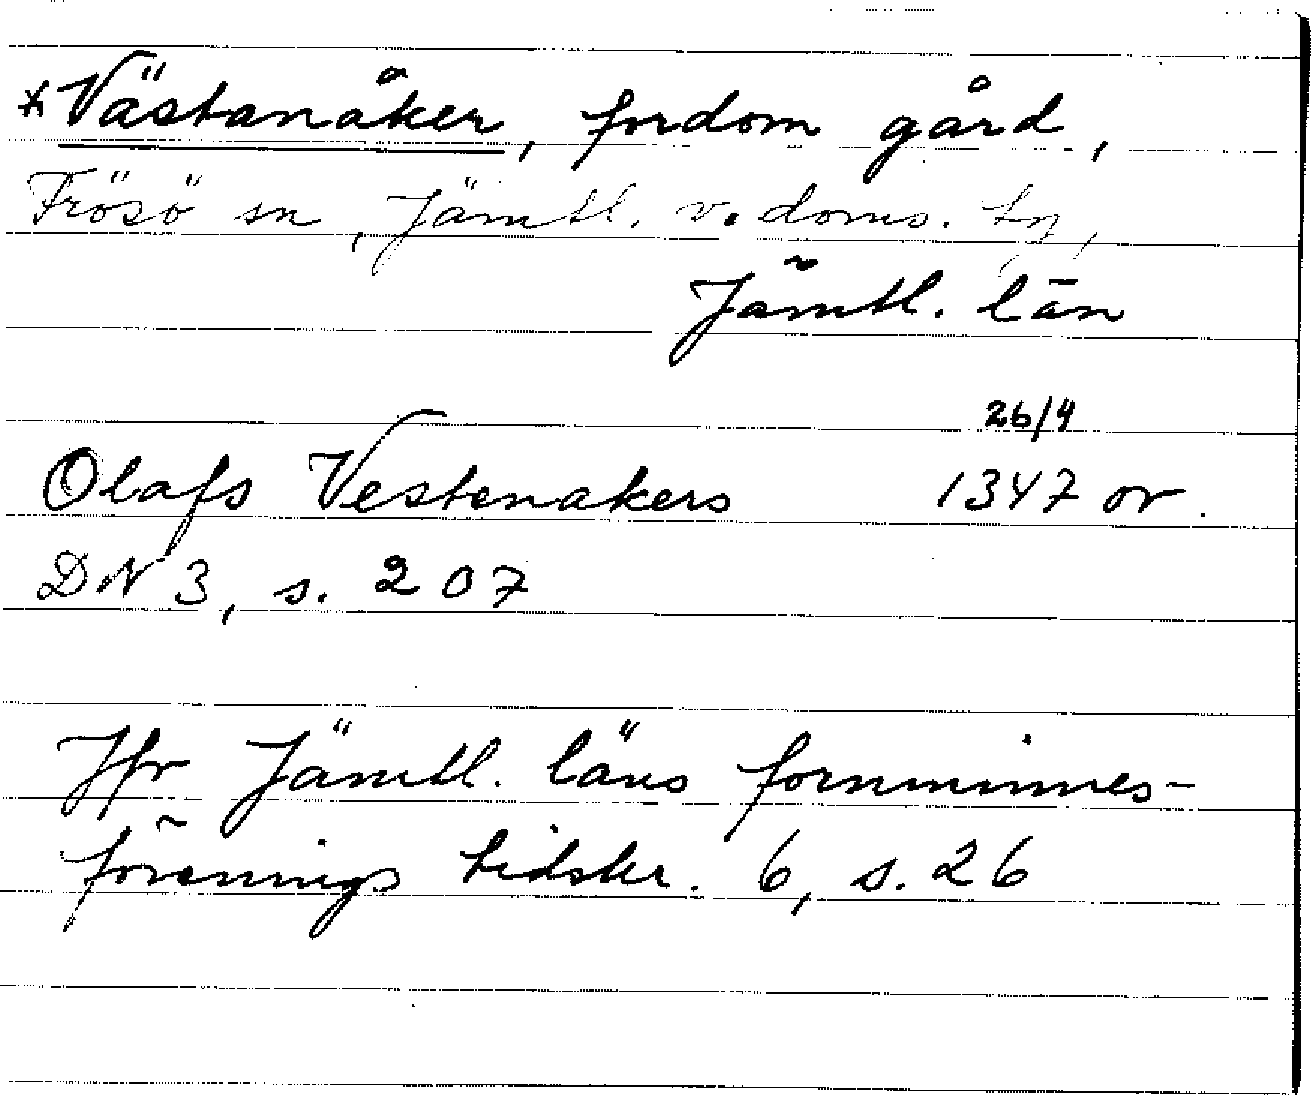 *Västanåker, fordom gård,
Frösö sn, Jämtl. v. doms. tg,
Jämtl. län
26/4
Olafs Vestenakers 1347 or.
DN 3, s. 207
Jfr Jämtl. läns fornminnes-
förenings tidskr. 6, s. 26